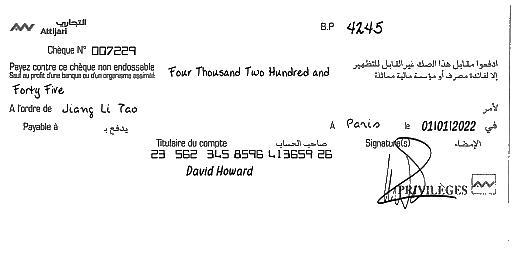 التجاري
Attijari
B.P 4245
Chèque N° 007229
Payez contre ce chèque non endossable
Sauf au profit d'une banque ou d'un organisme assimilé
Four Thousand Two Hundred and
ادفعوا مقابل هذا الصك غير القابل للتظهير
إلا لفائدة مصرف أو مؤسسة مالية مماثلة
Forty Five
A l'ordre de Jiang Li Tao لأمر
Payable à يدفع بـ
A Paris le 01/01/2022 في
Titulaire du compte صاحب الحساب
Signature(s) الإمضاء
23 562 345 8596 413659 26
David Howard
PRIVILÈGES